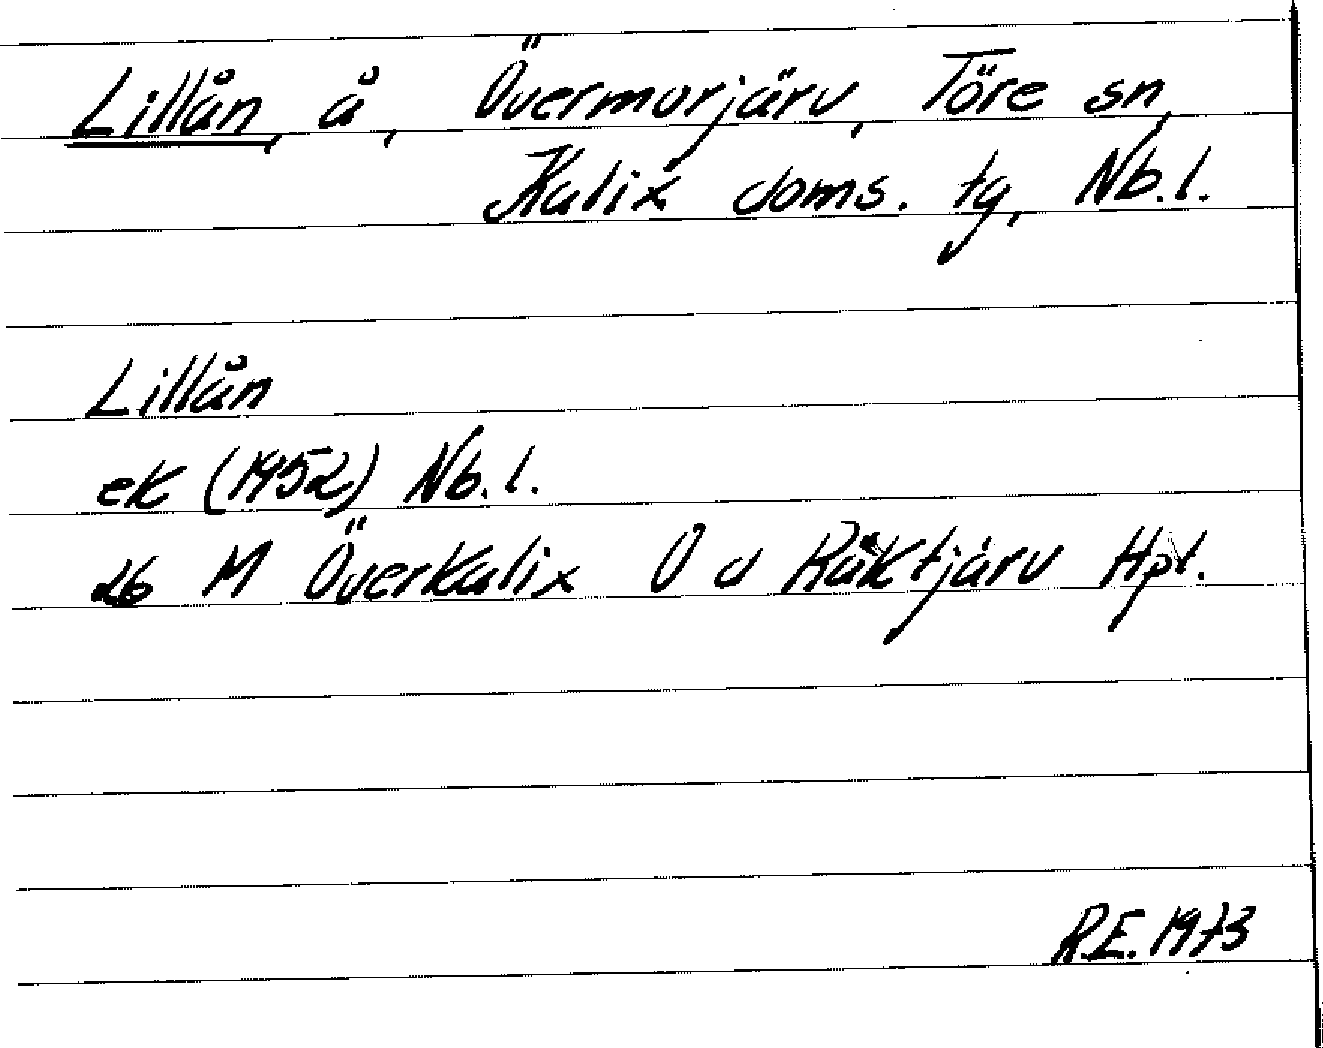 Lillån, å, Övermorjärv, Töre sn,
Kalix doms. tg, Nb.l.
Lillån
ek (1952) Nb.l.
26 M Överkalix O d Räktjärv Hpl.
R.E. 1973